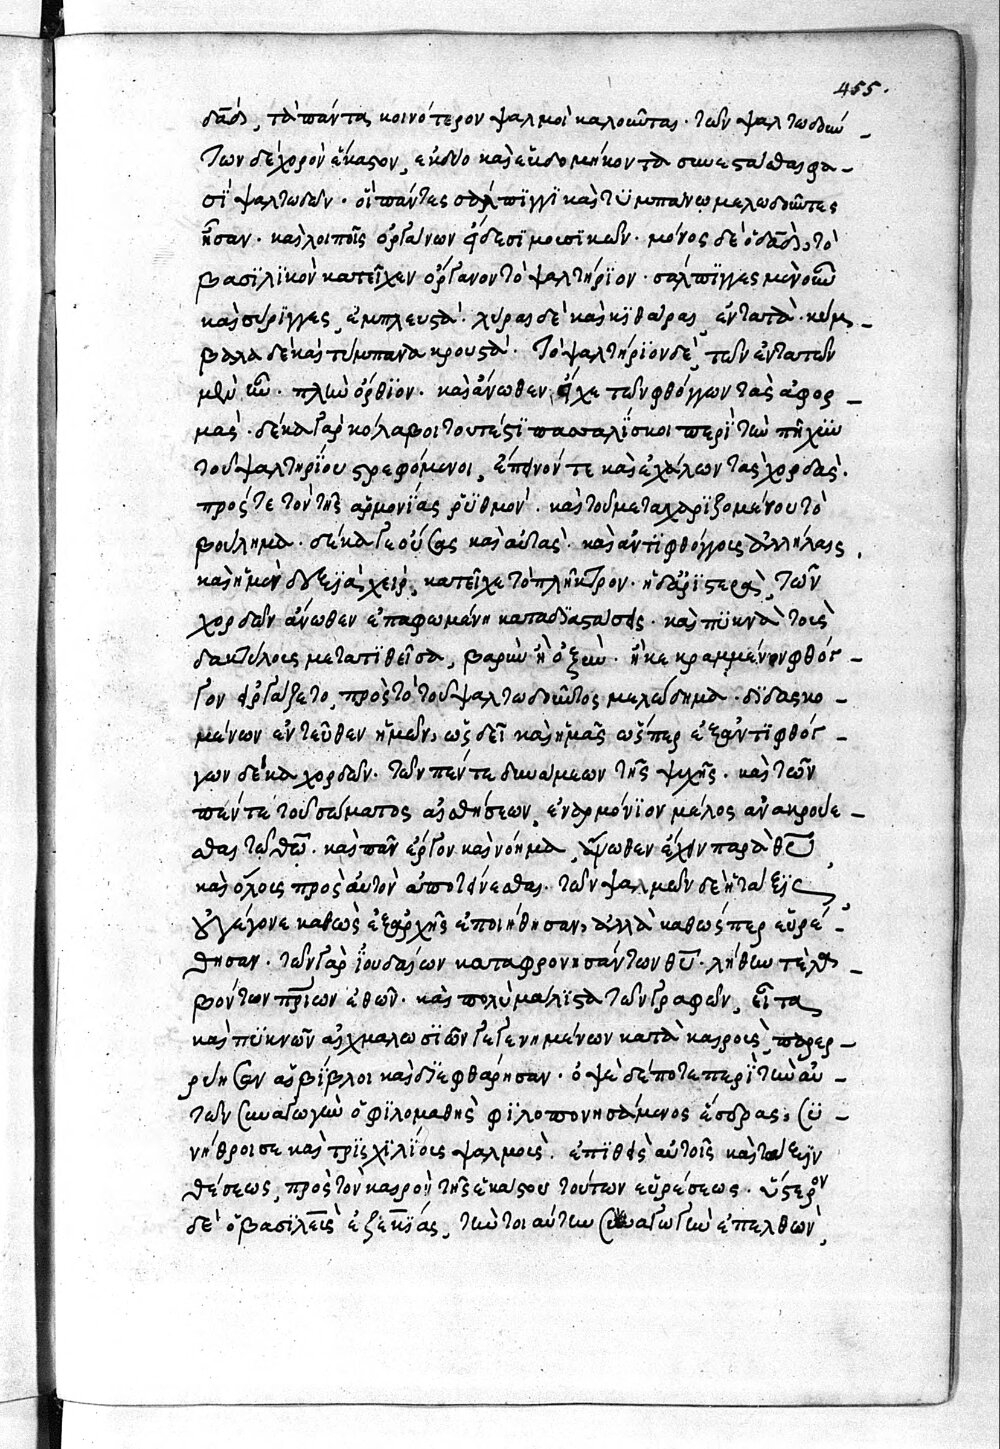 455.
δαδ, τὰ πάντα κοινότερον ψαλμοὶ καλοῦνται. τῶν ψαλτωδῶν
των δὲ χορὸν ἕκαστον, ἐκ δύο καὶ ἑβδομήκοντα συνεστάσθαι φα-
σῒ ψαλτωδῶν. οἳ πάντες σάλπϊγγϊ καὶ τϋμπάνω μελωδοῦντες
ἦσαν. καὶ λοιποῖς ὀργάνων εἴδεσϊ μουσϊκῶν. μόνος δὲ ὁ δαδ, τὸ
βασϊλϊκὸν κατεῖχεν ὄργανον τὸ ψαλτήρϊον. σάλπϊγγες μὲν οὖν
καὶ σύριγγες, ἐμπνευστά. λύραι δὲ καὶ κϊθάραι, ἐντατά. κύμ-
βαλα δὲ καὶ τύμπανα κρουστά. Τὸ ψαλτήρϊον δὲ, τῶν ἐντατῶν
μὲν ὂν. πλὴν ὄρθϊον. καὶ ἄνωθεν εἶχε τῶν φθόγγων τὰς ἀφορ-
μάς. δέκα γὰρ κόλλαβοι τουτέστϊ πασσαλΐσκοι περῒ τὸν πῆχϋν
τοῦ ψαλτηρΐου στρεφόμενοι, ἔτεινόν τε καὶ ἐχάλων τὰς χορδὰς.
πρός τε τὸν τῆς ἁρμονΐας ῥϋθμόν. καὶ τοῦ μεταχειρϊζομένου τὸ
βούλημα. δέκα γε οὔσας καὶ αὐτάς. καὶ ἀντϊφθόγγους ἀλλήλαις,
καὶ ἡ μὲν δεξϊὰ χεὶρ, κατεῖχε τὸ πλῆκτρον. ἡ δ᾽ ἀρϊστερὰ, τῶν
χορδῶν ἄνωθεν ἐπαφωμένη κατὰ δϊαστάσεις. καὶ πϋκνὰ τοὺς
δακτύλους μετατϊθεῖσα, βαρὺν ἢ ὀξὺν. ἢ κεκραμμένον φθόγ-
γον εἰργάζετο, πρὸς τὸ τοῦ ψαλτωδοῦντος μελώδημα. δϊδασκο-
μένων ἐντεῦθεν ἡμῶν, ὡς δεῖ καὶ ἡμᾶς ὥσπερ ἐξ ἀντϊφθόγ-
γων δέκα χορδῶν. τῶν πέντε δυνάμεων τῆς ψυχῆς. καὶ τῶν
πέντε τοῦ σώματος αἰσθήσεων, ἐναρμόνϊον μέλος ἀνακρούε-
σθαι τῶ θῶ. καὶ πᾶν ἔργον καὶ νόημα, ἄνωθεν ἔχειν παρὰ θῦ,
καὶ ὅλους πρὸς αὐτὸν ἀποτείνεσθαι. τῶν ψαλμῶν δὲ ἡ τάξϊς,
οὐ γέγονε καθὼς ἐξ ἀρχῆς ἐποιήθησαν, ἀλλὰ καθὼς περ εὑρέ-
θησαν. τῶν γὰρ ἰουδαίων καταφρονησάντων θῦ. λήθην τὲ λα-
βόντων πρΐων ἐθῶν. καὶ πολὺ μάλϊστα τῶν γραφῶν, εἶτα
καὶ πϋκνῶν αἰχμαλωσϊῶν γεγενημένων κατὰ καιροὺς, παρερ-
ρύησαν αἱ βίβλοι καὶ δϊεφθάρησαν. ὀψὲ δέ ποτε περῒ τὴν αὐ-
τῶν συναγωγὴν ὁ φϊλομαθὴς φϊλοπονησάμενος ἔσδρας, σϋ-
νήθροισε καὶ τρϊσχϊλΐους ψαλμοὺς. ἐπϊθεὶς αὐτοῖς καὶ τάξϊν
θέσεως, πρὸς τὸν καιρὸν τῆς ἑκάστου τούτων εὑρέσεως. ὕστερον
δὲ ὁ βασϊλεὺς ἐζεκΐας, τὴν τοιαύτην συναγωγὴν ἐπελθὼν,